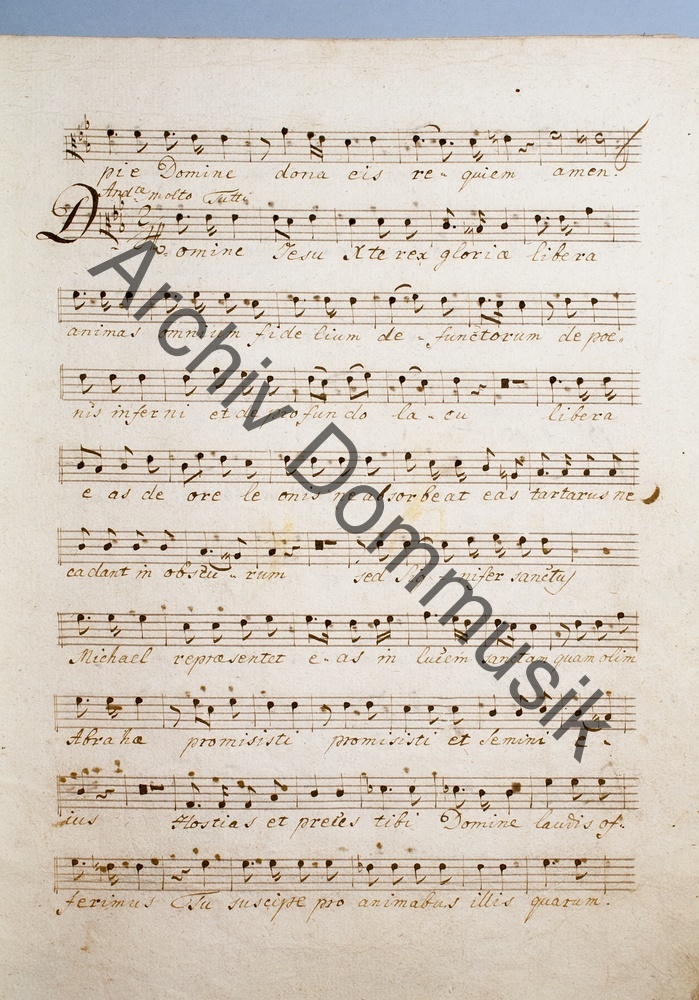 pie Domine dona eis re- quiem amen.
And.te molto Tutti
Domine Jesu Xte rex gloriæ libera
animas omnium fidelium de- functorum de poe-
nis inferni et de profundo la- cu libera
e as de ore le onis ne absorbeat eas tartarus ne
cadant in obscu- rum sed sig- nifer sanctus
Michael repræsentet e- as in lucem sanctam quam olim
Abrahæ promisisti promisisti et semini e-
ius Hostias et preces tibi Domine laudis of-
ferimus Tu suscipe pro animabus illis quarum.
Archiv Dommusik